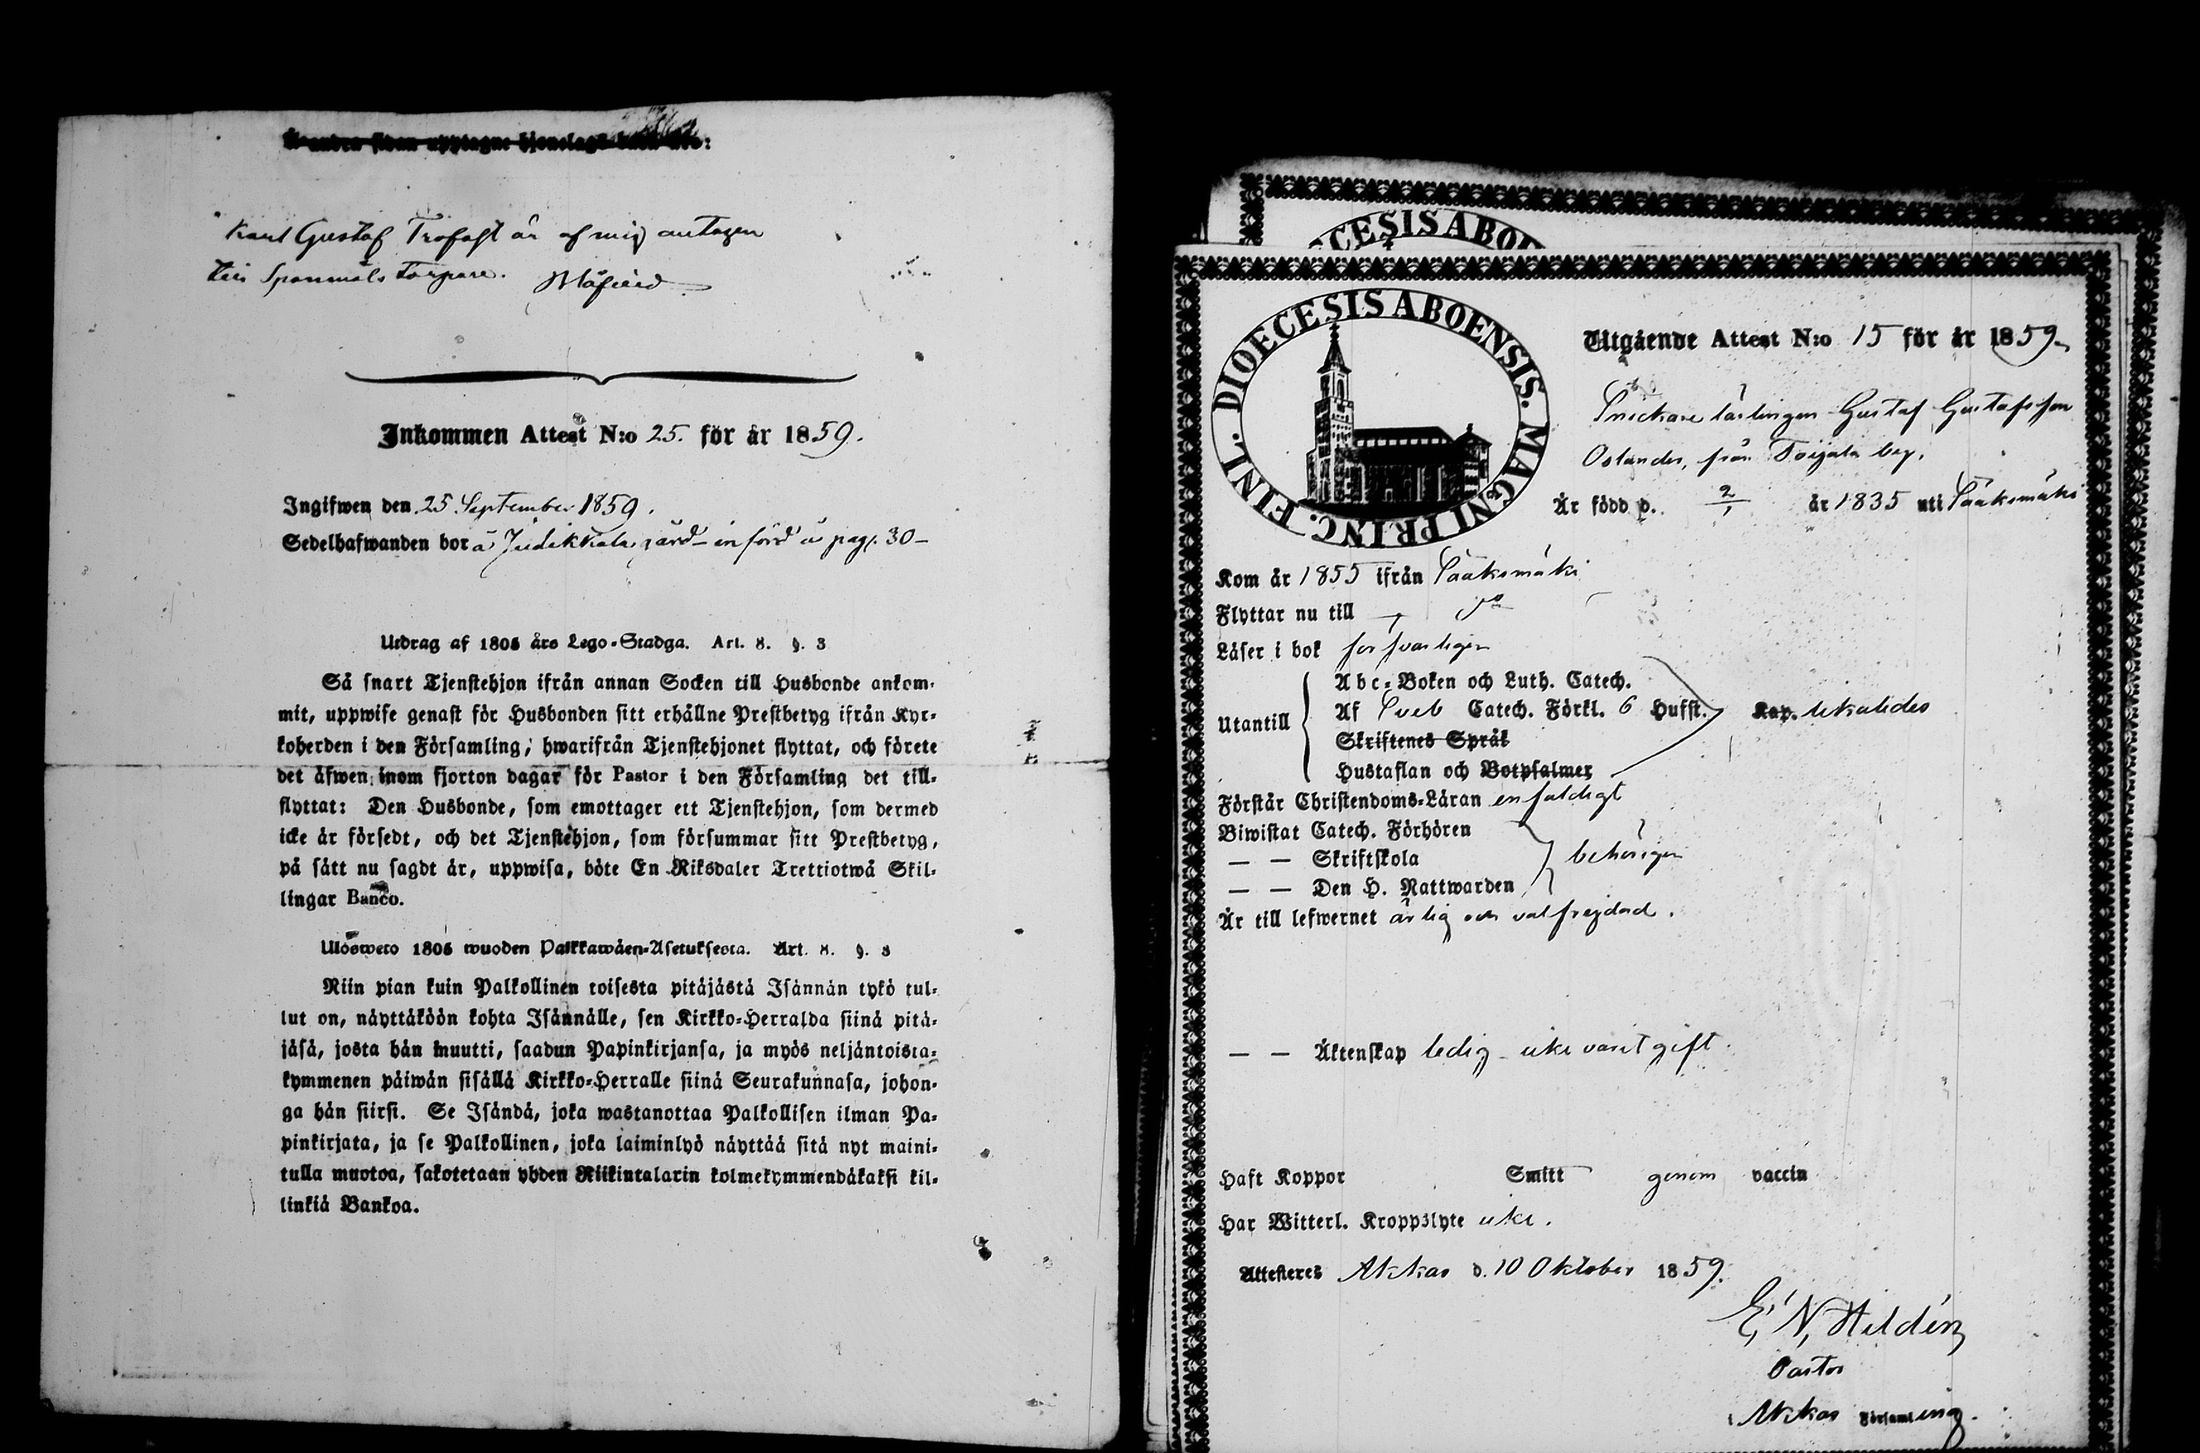 Å andra sidan upptagne tjenstlags barn äro:
Karl Gustaf Trofast är af mig antagen
till Spanmåls Torpare.
Inkommen Attest N:o 25. för år 1859.
Ingifwen den 25 September 1859.
Sedelhafwanden bor å Judikkala gård - införd å pag. 30 -
Utdrag af 1805 års Lego-Stadga. Art. 8. §. 3
Så snart Tjenstehjon ifrån annan Socken till Husbonde ankom-
mit, uppwise genast för Husbonden sitt erhållne Prestbetyg ifrån Kyr-
koherden i den Församling, hwarifrån Tjenstehjonet flyttat, och förete
det äfwen inom fjorton dagar för Pastor i den Församling det till-
flyttat: Den Husbonde, som emottager ett Tjenstehjon, som dermed
icke är försedt, och det Tjenstehjon, som försummar sitt Prestbetyg,
på sätt nu sagdt är, uppwisa, böte En Riksdaler Trettiotwå Skil-
lingar Banco.
Ulosweto 1805 wuoden Palkkawäen-Asetuksesta. Art. 8. §. 3
Niin pian kuin Palkollinen toisesta pitäjästä Isännän tykö tul-
lut on, näyttäköön kohta Isännälle, sen Kirkko-Herralda siinä pitä-
jäsä, josta hän muutti, saadun Papinkirjansa, ja myös neljäntoista-
kymmenen päiwän sisällä Kirkko-Herralle siinä Seurakunnasa, johon-
ga hän siirsi. Se Isändä, joka wastanottaa Palkollisen ilman Pa-
pinkirjata, ja se Palkollinen, joka laiminlyö näyttää sitä nyt maini-
tulla muotoa, sakotetaan yhden Riikintalarin kolmekymmendäkaksi kil-
linkiä Bankoa.
CESIS ABOE
DIOECESIS ABOENSIS. MAGNI PRINC. FINL.
Utgående Attest N:o 15 för år 1859
Snickare lärlingen Gustaf Gustafsson
Oslander, från Toijala by,
Är född d. 2/1 år 1835 uti Sääksmäki
Kom år 1855 ifrån Sääksmäki
Flyttar nu till — do
Läser i bok försvarligen
Utantill
Abc-Boken och Luth. Catech.
Af Sveb Catech. Förkl. 6 Hufst.
Skriftenes Språk
Hustaflan och Botpsalmer
Kap. likaledes
Förstår Christendoms-Läran enfaldigt
Biwistat Catech. Förhören
— — Skriftskola
— — Den H. Nattwarden
behörigen
Är till lefwernet ärlig och välfrejdad.
— — Äktenskap ledig - icke varit gift.
Haft Koppor Smitt genom vaccin
Har Witterl. Kroppslyte icke.
Attesteres Akkas d. 10 Oktober 1859.
E, N, Hildén
Pastor
i Akkas Församling.